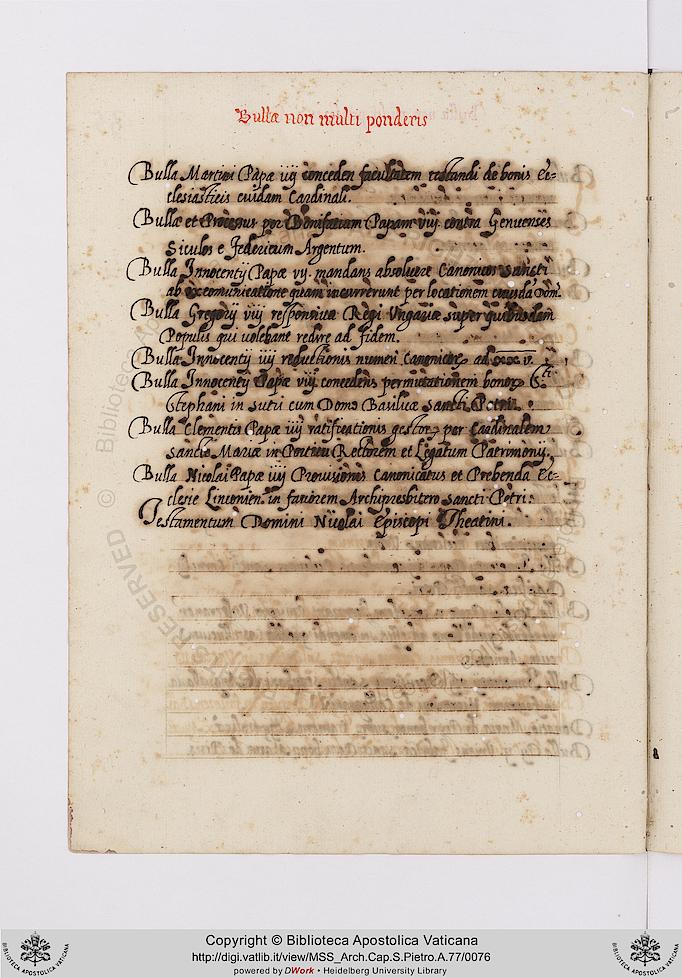 Bullæ non multi ponderis
Bulla Martini Papæ iiij conceden facultatem testandi de bonis Ec=
clesiasticis cuidam Cardinali.
Bullæ et Processus per Bonifatium Papam viij contra Genuenses
Siculos e Federicum Argentum.
Bulla Innocentij Papæ vij. mandans absolvere Canonicos Sancti
ab excomunicatione quam incurrerunt per locationem cuiusdā Dom.
Bulla Gregorij viiij responsiva Regi Ungariæ super quibusdam
Populis qui volebant redire ad fidem.
Bulla Innocentij iiij reductionis numeri Canonicor ad xxx v.
Bulla Innocentij Papæ viij concedens permutationem bonor S.ti
Stephani in Sutri cum Domo Basilicæ Sancti Petri.
Bulla Clementis Papæ iiij ratificationis gestor per Cardinalem
Sanctæ Mariæ in Porticu Rectorem et Legatum Patrimonij.
Bulla Nicolai Papæ iiij Provisionis Canonicatus et Prebenda Ec=
clesie Linconien. in favorem Archipresbitero Sancti Petri.
Testamentum Domini Nicolai Episcopi Theatini.
Copyright © Biblioteca Apostolica Vaticana
http://digi.vatlib.it/view/MSS_Arch.Cap.S.Pietro.A.77/0076
powered by DWork • Heidelberg University Library